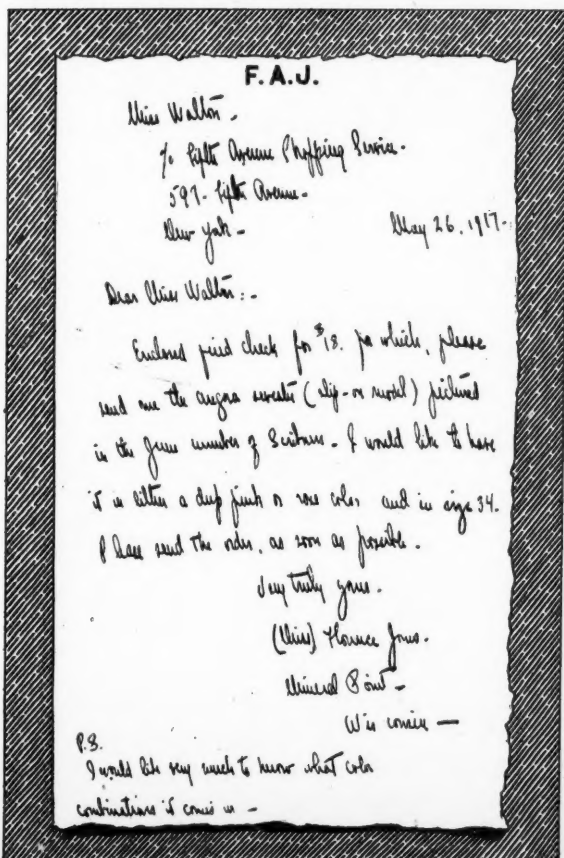 F.A.J.
Miss Walton -
c/o Fifth Avenue Shopping Service -
597 - Fifth Avenue -
New York -
May 26, 1917 -
Dear Miss Walton: -
Enclosed find check for $18. for which, please
send me the angora sweater (slip-on model) pictured
in the June number of Scribners - I would like to have
it in either a deep pink or rose color and in size 34.
Please send the order, as soon as possible.
Very truly yours.
(Miss) Florence Jones.
Mineral Point -
Wisconsin —
P.S.
I would like very much to know what color
combinations it comes in -